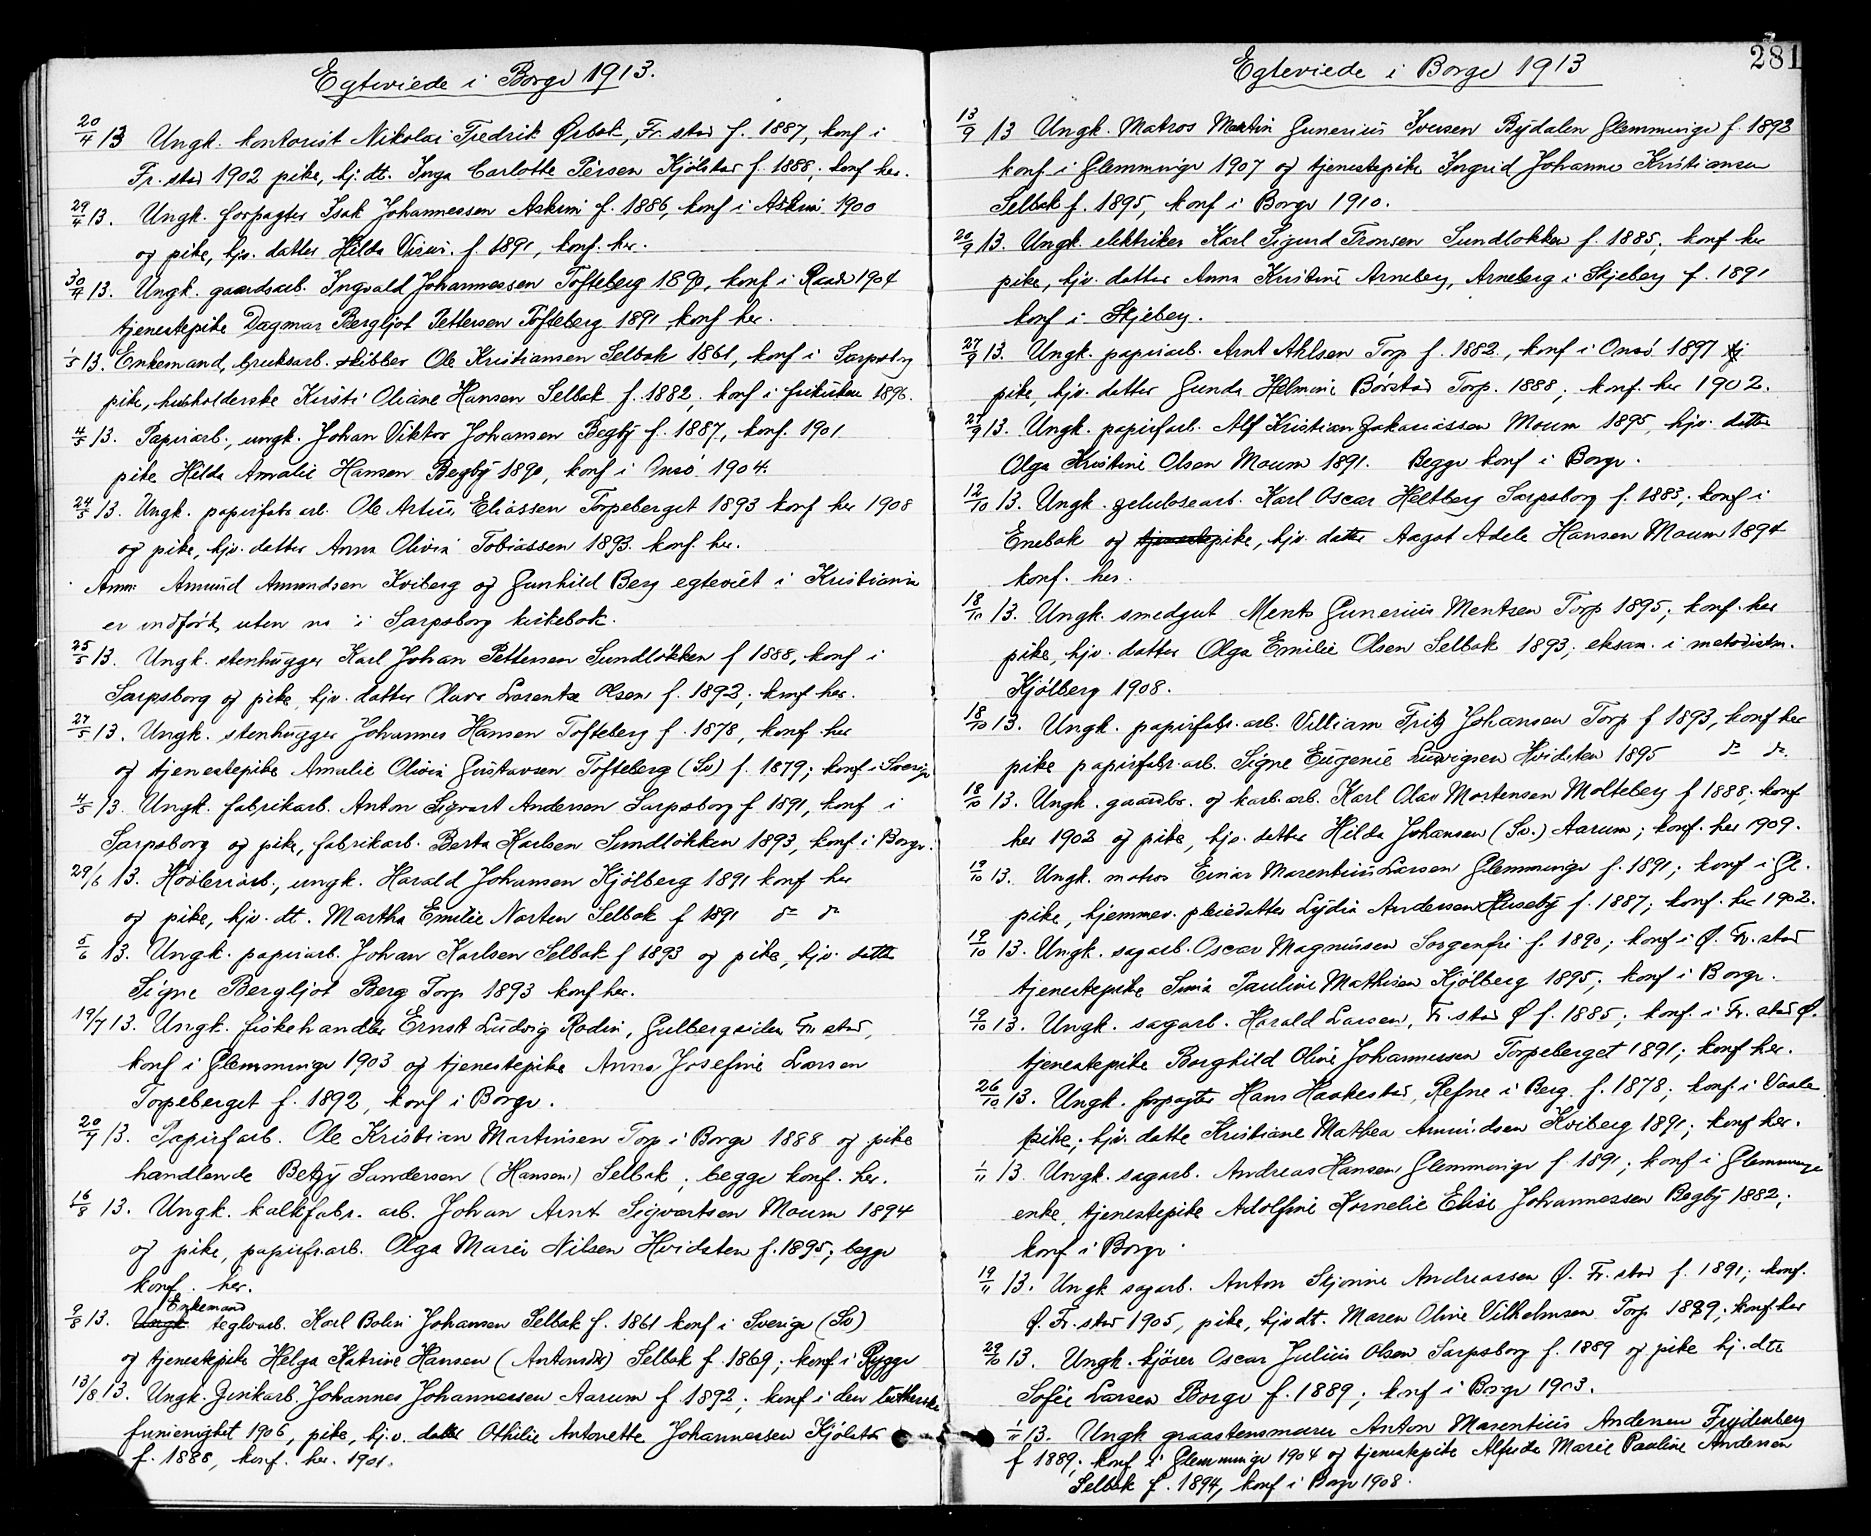 Egteviede i Borge 1913.
20/4 13 Ungk. kontorist Nikolai Fredrik Ørbek, Fr.stad f. 1887, konf i
Fr.stad 1902 pike, hj. dt. Inga Carlotte Persen Kjölstad f. 1888, konf her.
29/4 13. Ungk. forpagter Isak Johannessen Askim f. 1886, konf i Askim 1900
og pike, hjv. datter Hilda f. 1891, konf. her.
30/4 13. Ungk. gaardsarb. Ingvald Johannessen Tofteberg 1890, konf i Raade 1904
tjenestepike Dagmar Bergljot Pettersen Tofteberg 1891 konf her.
1/5 13. Enkemand, bruksarb. skibber Ole Kristiansen Selbak 1861, konf i Sarpsborg
pike, husholderske Kirsti Oliane Hansen Selbak f. 1882, konf i frikirken 1896.
4/5 13. Papirarb., ungk. Johan Viktor Johansen Begby f. 1887, konf. 1901
pike Hilda Amalie Hansen Begby 1890, konf i Onsö 1904.
24/5 13. Ungk. papirfabr arb. Ole Artur Eliassen Torpeberget 1893 konf her 1908
og pike, hjv. datter Anna Olivia Tobiassen 1893. konf. her.
Anm: Amund Amundsen Kviberg og Gunhild Berg egteviet i Kristiania
er indfört uten no i Sarpsborg kirkebok.
25/5 13. Ungk. stenhugger Karl Johan Pettersen Sundlökken f 1888, konf i
Sarpsborg og pike, hjv. datter Olava Lorentze Olsen f. 1892; konf her.
27/5 13. Ungk. stenhugger Johannes Hansen Tofteberg f. 1878, konf her
og tjenestepike Amalie Olivia Gustavsen Tofteberg (Sv) f. 1879; konf i Sverige
4/5 13. Ungk. fabrikarb. Anton Sigvart Andersen Sarpsborg f 1891, konf i
Sarpsborg og pike, fabrikarb. Berta Karlsen Sundlökken 1893, konf i Borge.
29/6 13. Hövleriarb., ungk. Harald Johansen Kjölberg 1891 konf her
og pike, hjv. dt. Martha Emilie Narten Selbak f 1891 do do
5/6 13. Ungk. papirarb. Johan Karlsen Selbak f 1893 og pike, hjv. datter
Signe Bergljot Berg Torp 1893 konf her.
19/7 13. Ungk. fiskehandler Ernst Ludvig Rodin, Gulbergsiden Fr.stad,
konf i Glemminge 1903 og tjenestepike Anna Josefine Larsen
Torpeberget f. 1892, konf i Borge.
20/7 13. Papirfarb. Ole Kristian Martinsen Torp i Borge 1888 og pike
handlende Betzy Sandersen (Hansen) Selbak; begge konf. her.
16/8 13. Ungk. kalkfabr. arb. Johan Arnt Sigvartsen Moum 1894
og pike, papirfr.arb. Olga Marie Nilsen Hvidsten f. 1895; begge
konf. her.
Enkemand
9/8 13. Ungk. teglv.arb. Karl Bolin Johansen Selbak f. 1861 konf i Sverige (Sv)
og tjenestepike Helga Katrine Hansen Selbak f. 1869; konf i Rygge
13/8 13. Ungk. Zinkarb. Johannes Johannessen Aarum f 1892; konf i den lutherske
frimenighet 1906, pike, hj.v. datter Othilie Antonette Johannessen Kjölstad
f. 1888, konf. her. 1901.
281
Egteviede i Borge 1913
13/9 13 Ungk. Matros Martin Gunerius Iversen Bydalen Glemminge f. 1893
konf. i Glemminge 1907 og tjenestepike Ingrid Johanne Kristiansen
Selbak f. 1895, konf i Borge 1910.
20/9 13. Ungk. elektriker Karl Sigurd Tronsen Sundlökken f. 1885, konf her
pike, hjv. datter Anna Kristine Arneberg, Arneberg i Skjeberg f. 1891
konf i Skjeberg.
27/9 13. Ungk. papirarb. Arnt Ahlsen Torp f. 1882, konf i Onsö 1897
pike, hjv. datter Gunda Helmine Börstad Torp. 1888; konf. her 1902.
27/9 13. Ungk. papirfarb. Alf Kristian Zakariassen Moum 1895, hjv. datter
Olga Kristine Olsen Moum 1891. Begge konf i Borge.
12/10 13. Ungk. celulosearb. Karl Oscar Heltberg Sarpsborg f. 1883, konf i
Enebak og tjenestepike, hjv. datter Aagot Adele Hansen Moum 1894
konf. her.
18/10 13. Ungk. smedgut Mentz Gunerius Mentzen Torp 1895; konf. her
pike, hjv. datter Olga Emilie Olsen Selbak 1893; eksam. i metodistm.
Kjölberg 1908.
18/10 13. Ungk. papirfabr. arb. Villiam Fritz Johansen Torp f 1893, konf her
pike papirfabr. arb. Signe Eugenie Ludvigsen Hvidsten 1895 do do.
18/10 13. Ungk. gaardbr. og karb. arb. Karl Olav Mortensen Molteberg f 1888; konf
her 1902 og pike, hjv. datter Hilda Johansen (Sv.) Aarum; konf. her 1909.
19/10 13. Ungk. matros Einar Marentius Larsen Glemminge f. 1891; konf i Gl.
pike, hjemmev. pleiedatter Lydia Andersen Huseby f. 1887; konf. her 1902.
19/10 13. Ungk. sagarb. Oscar Magnussen Sorgenfri f. 1890; konf i Ø. Fr.stad
tjenestepike Pauline Mathisen Kjölberg 1895; konf i Borge.
19/10 13. Ungk. sagarb. Harald Larsen, Fr.stad Ø f. 1885; konf. i Fr.stad Ø.
tjenestepike Borghild Oline Johannessen Torpeberget 1891; konf her.
26/10 13. Ungk. forpagter Hans Haakestad, Refne i Berg f. 1878; konf. i Vaale
pike; hjv. datter Kristiane Mathea Amundsen Kviberg 1891; konf her.
1/11 13. Ungk. sagarb. Andreas Hansen Glemminge f. 1891; konf i Glemminge
enke, tjenestepike Adolfine Kornelie Elise Johannessen Begby 1882;
konf i Borge.
19/11 13. Ungk sagarb. Anton Andreassen Ø. Fr.stad f. 1891; konf.
Ø. Fr.stad 1905, pike, hjv dt. Maren Oline Vilhelmsen Torp 1889; konf. her
29/10 13. Ungk. kjörer Oscar Julius Olsen Sarpsborg f. 1889 og pike hj. dtr
Sofie Larsen Borge f. 1889; konf i Borge 1903.
1/11 13. Ungk graastensmurer Anton Marentius Andersen Frydenberg
f 1889; konf i Glemminge 1904 og tjenestepike Alfrida Marie Pauline Andersen
Selbak f. 1894, konf i Borge 1908.